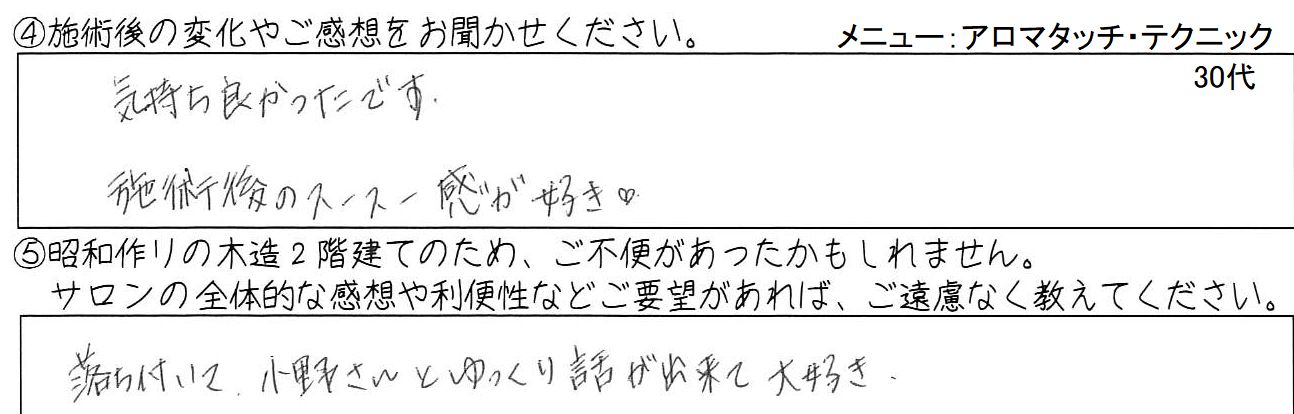 ④施術後の変化やご感想をお聞かせください。 メニュー：アロマタッチ・テクニック
30代
気持ち良かったです.
施術後のスースー感が好き♡
⑤昭和作りの木造２階建てのため、ご不便があったかもしれません。
サロンの全体的な感想や利便性などご要望があれば、ご遠慮なく教えてください。
落ち付いて、小野さんとゆっくり話が出来て大好き.